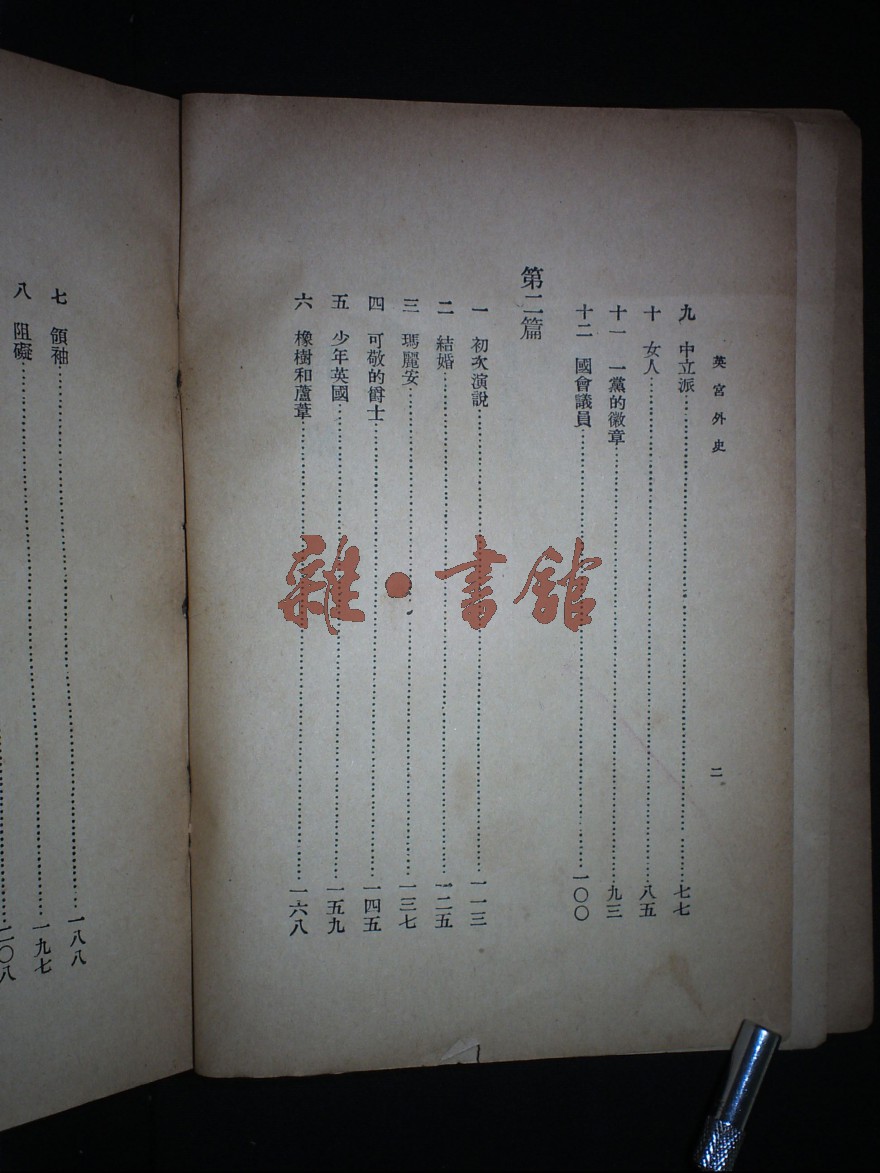 英宮外史
二
九 中立派 七七
十 女人 八五
十一 一黨的徽章 九三
十二 國會議員 一〇〇
第二篇
一 初次演説 一一三
二 結婚 一二五
三 瑪麗安 一三七
四 可敬的爵士 一四五
五 少年英國 一五九
六 橡樹和蘆葦 一六八
七 領袖 一八八
八 阻礙 一九七
二〇八
雜·書館